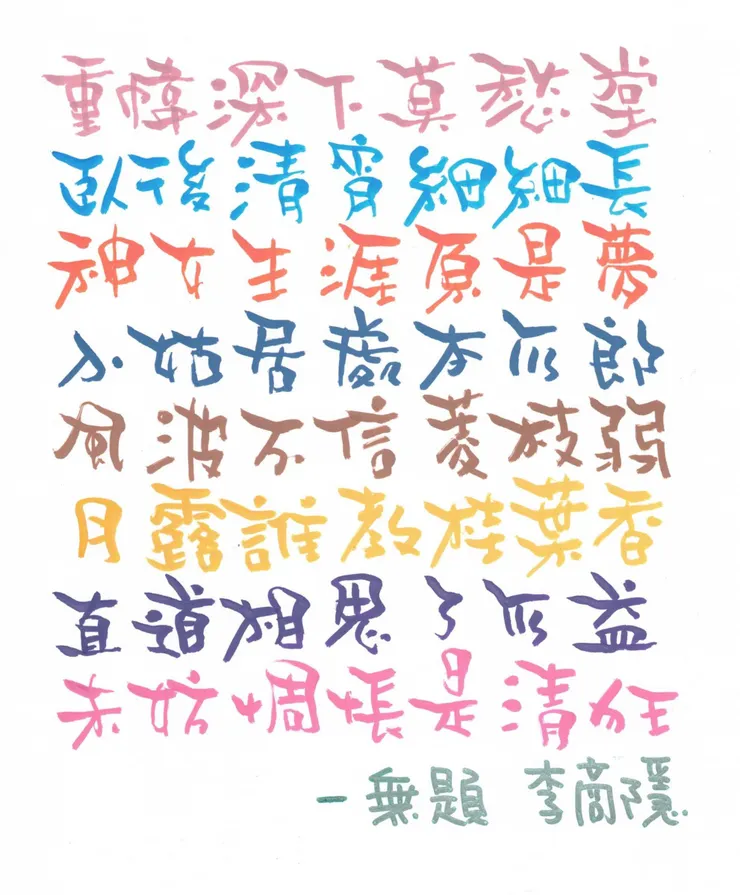 重幃深下莫愁堂
臥後清宵細細長
神女生涯原是夢
小姑居處本无郎
風波不信菱枝弱
月露誰教桂葉香
直道相思了无益
未妨惆悵是清狂
—無題 李商隱